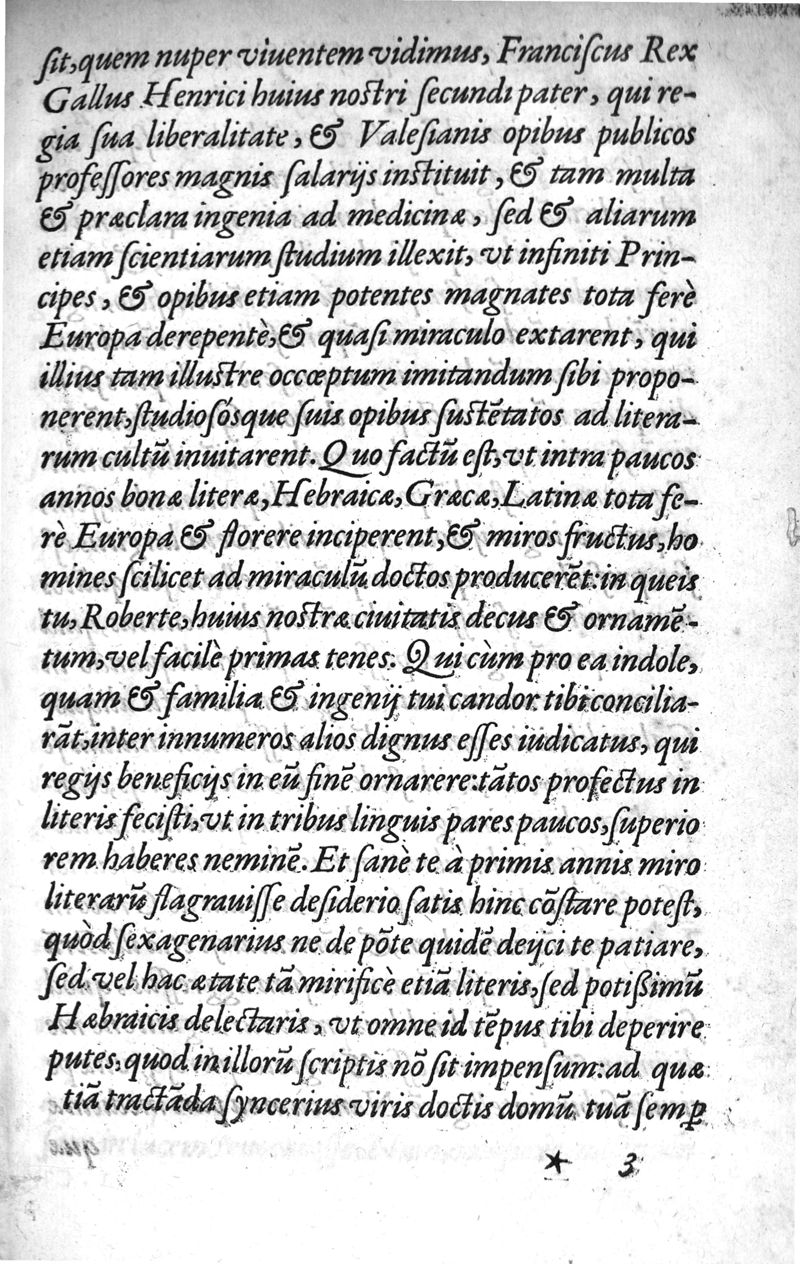 ſit, quem nuper viuentem vidimus, Franciſcus Rex
Gallus Henrici huius noſtri ſecundi pater, qui re-
gia ſua liberalitate, & Valeſianis opibus publicos
profeſſores magnis ſalarijs inſtituit, & tam multa
& præclara ingenia ad medicinæ, ſed & aliarum
etiam ſcientiarum ſtudium illexit, vt infiniti Prin-
cipes, & opibus etiam potentes magnates tota ferè
Europa derepentè, & quaſi miraculo extarent, qui
illius tam illuſtre occœptum imitandum ſibi propo-
nerent, ſtudioſósque ſuis opibus ſuſtētatos ad litera-
rum cultū inuitarent. Quo factū eſt, vt intra paucos
annos bonæ literæ, Hebraicæ, Græcæ, Latinæ tota fe-
rè Europa & florere inciperent, & miros fructus, ho
mines ſcilicet ad miraculū doctos producerēt: in queis
tu, Roberte, huius noſtræ ciuitatis decus & ornamē-
tum, vel facilè primas tenes. Qui cùm pro ea indole,
quam & familia & ingenij tui candor tibi concilia-
rāt, inter innumeros alios dignus eſſes iudicatus, qui
regijs beneficijs in eū finē ornarere: tātos profectus in
literis feciſti, vt in tribus linguis pares paucos, ſuperio
rem haberes neminē. Et ſanè te à primis annis miro
literarū flagrauiſſe deſiderio ſatis hinc cōſtare poteſt,
quòd ſexagenarius ne de pōte quidē deijci te patiare,
ſed vel hac ætate tā mirificè etiā literis, ſed potißimū
Hæbraicis delectaris, vt omne id tēpus tibi deperire
putes, quod in illorū ſcriptis nō ſit impenſum: ad quæ
tiā tractāda ſyncerius viris doctis domū tuā ſemꝑ
* 3